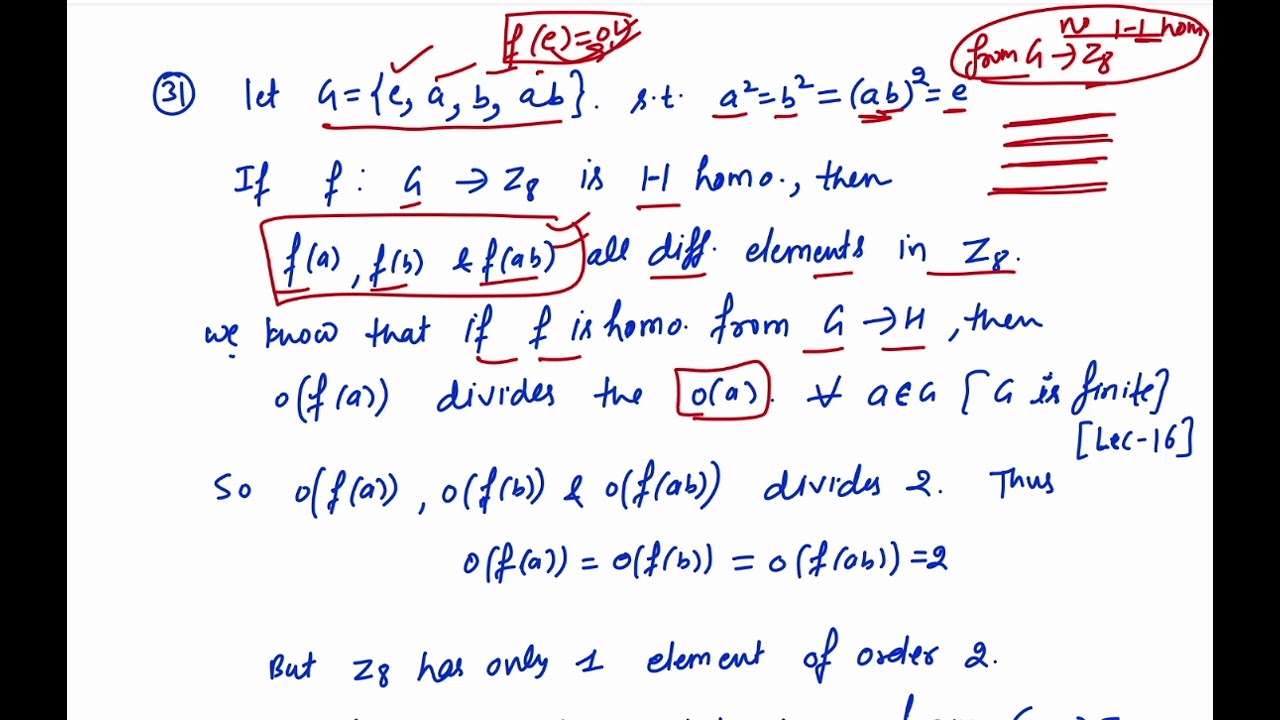 f(e)=0
no 1-1 hom
from G → Z8
(31) let G={e, a, b, ab}. s.t. a²=b²=(ab)²=e
If f: G → Z8 is 1-1 homo., then
f(a), f(b) & f(ab) all diff. elements in Z8.
we know that if f is homo. from G → H, then
o(f(a)) divides the o(a). ∀ a∈G [G is finite]
[Lec-16]
So o(f(a)), o(f(b)) & o(f(ab)) divides 2. Thus
o(f(a)) = o(f(b)) = o(f(ab)) =2
But Z8 has only 1 element of order 2.